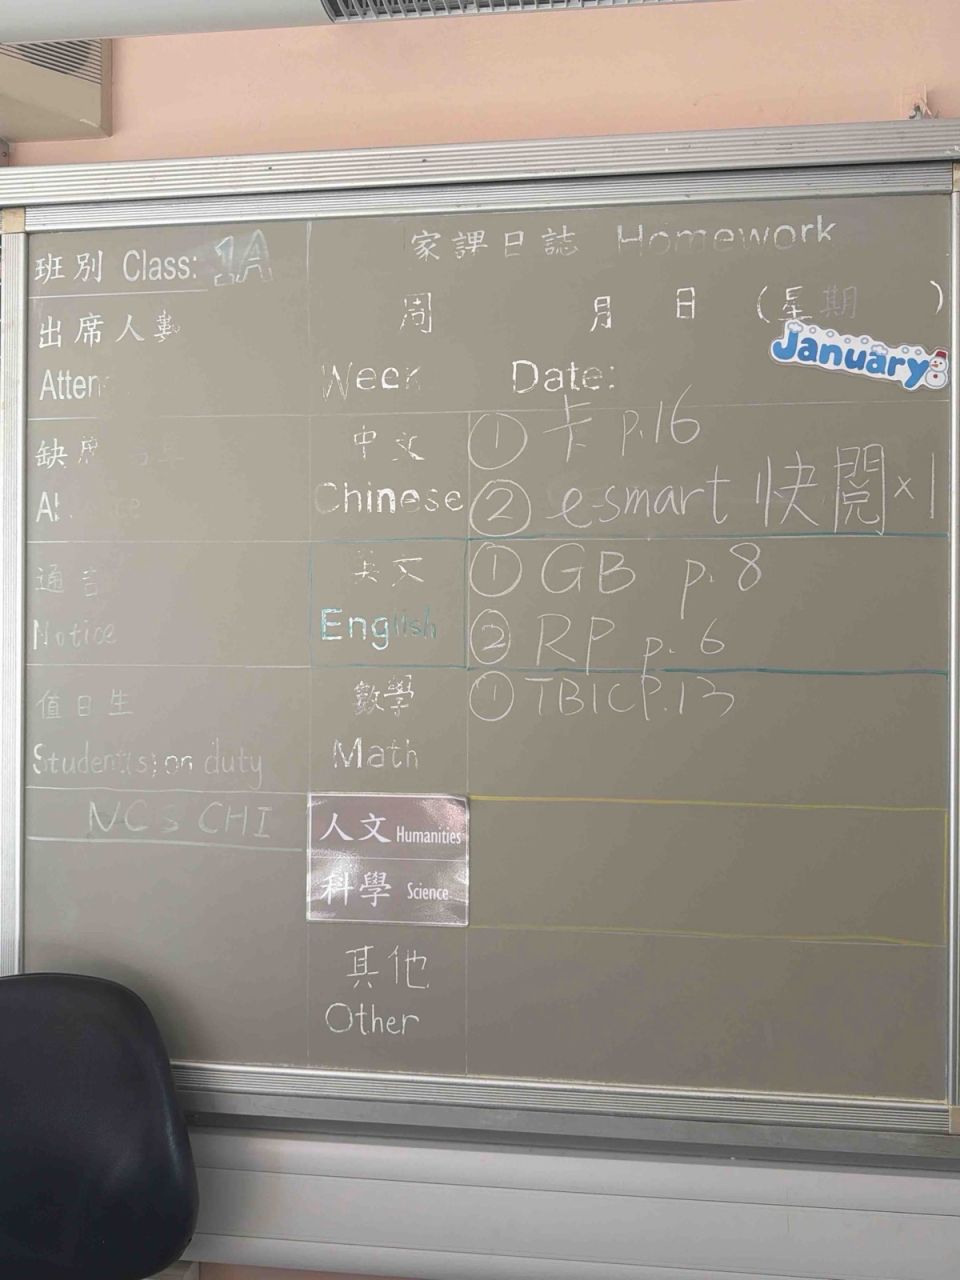 班別 Class: 1A
家課日誌 Homework
出席人數
周 月 日 (星期 )
January
Week Date:
缺席
中文 ① 卡 p.16
Chinese ② e-smart 快閱×1
通告
英文 ① GB p.8
Notice
English ② RP p.6
值日生
數學 ① TB1C P.13
Student(s) on duty
Math
NCS CHI
人文 Humanities
科學 Science
其他
Other